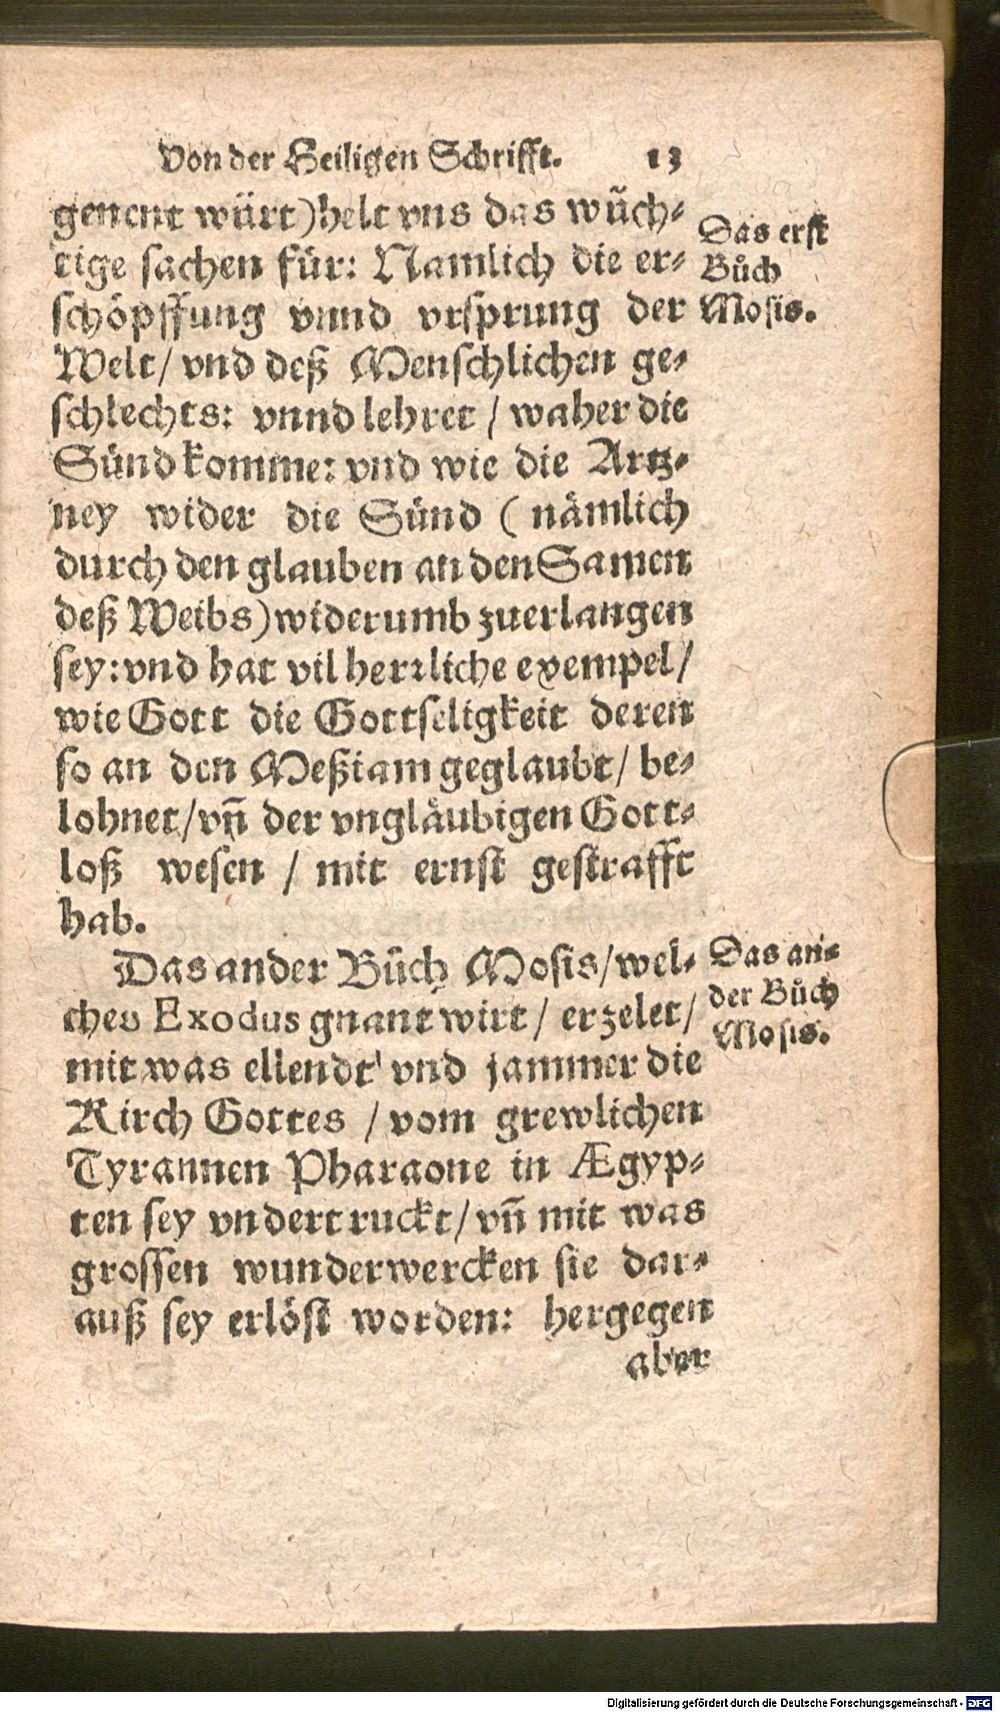 Von der Heiligen Schrifft. 13
genent würt) helt vns das wüch⸗
tige sachen für: Namlich die er⸗
schöpffung vnnd vrsprung der
Welt/ vnd deß Menschlichen ge⸗
schlechts: vnnd lehret / waher die
Sünd komme: vnd wie die Artz⸗
ney wider die Sünd ( nämlich
durch den glauben an den Samen
deß Weibs) widerumb zuerlangen
sey: vnd hat vil herrliche exempel/
wie Gott die Gottseligkeit deren
so an den Meßiam geglaubt/ be⸗
lohnet/ vñ der vngläubigen Gott⸗
loß wesen / mit ernst gestrafft
hab.
Das ander Bůch Mosis/ wel⸗
ches Exodus gnant wirt/ erzelet/
mit was ellendt vnd jammer die
Kirch Gottes / vom grewlichen
Tyrannen Pharaone in Ægyp⸗
ten sey vndertruckt/ vñ mit was
grossen wunderwercken sie dar⸗
auß sey erlöst worden: hergegen
aber
Das erst
Bůch
Mosis.
Das an⸗
der Bůch
Mosis.
Digitalisierung gefördert durch die Deutsche Forschungsgemeinschaft - DFG